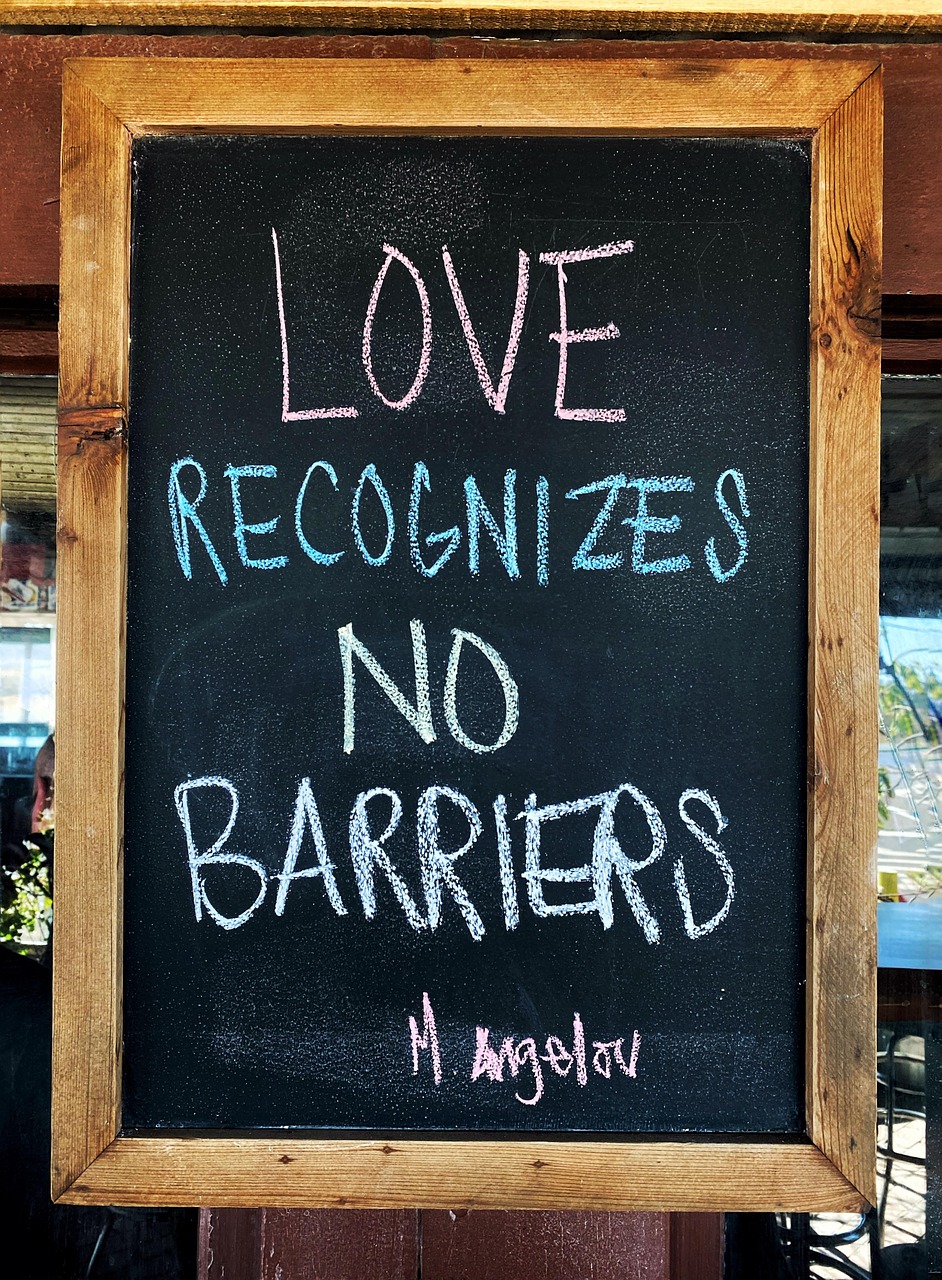 LOVE
RECOGNIZES
NO
BARRIERS
M Angelou